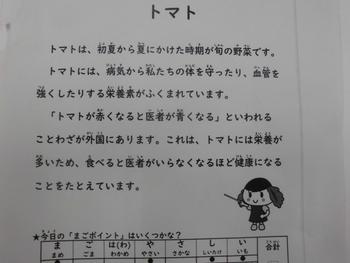 トマト
トマトは、初夏から夏にかけた時期が旬の野菜です。
トマトには、病気から私たちの体を守ったり、血管を
強くしたりする栄養素がふくまれています。
「トマトが赤くなると医者が青くなる」といわれる
ことわざが外国にあります。これは、トマトには栄養が
多いため、食べると医者がいらなくなるほど健康になる
ことをたとえています。
★今日の「まごポイント」はいくつかな？
ま ご は(わ) や さ し い 合計
まめ ごま わかめ やさい さかな しいたけ いも